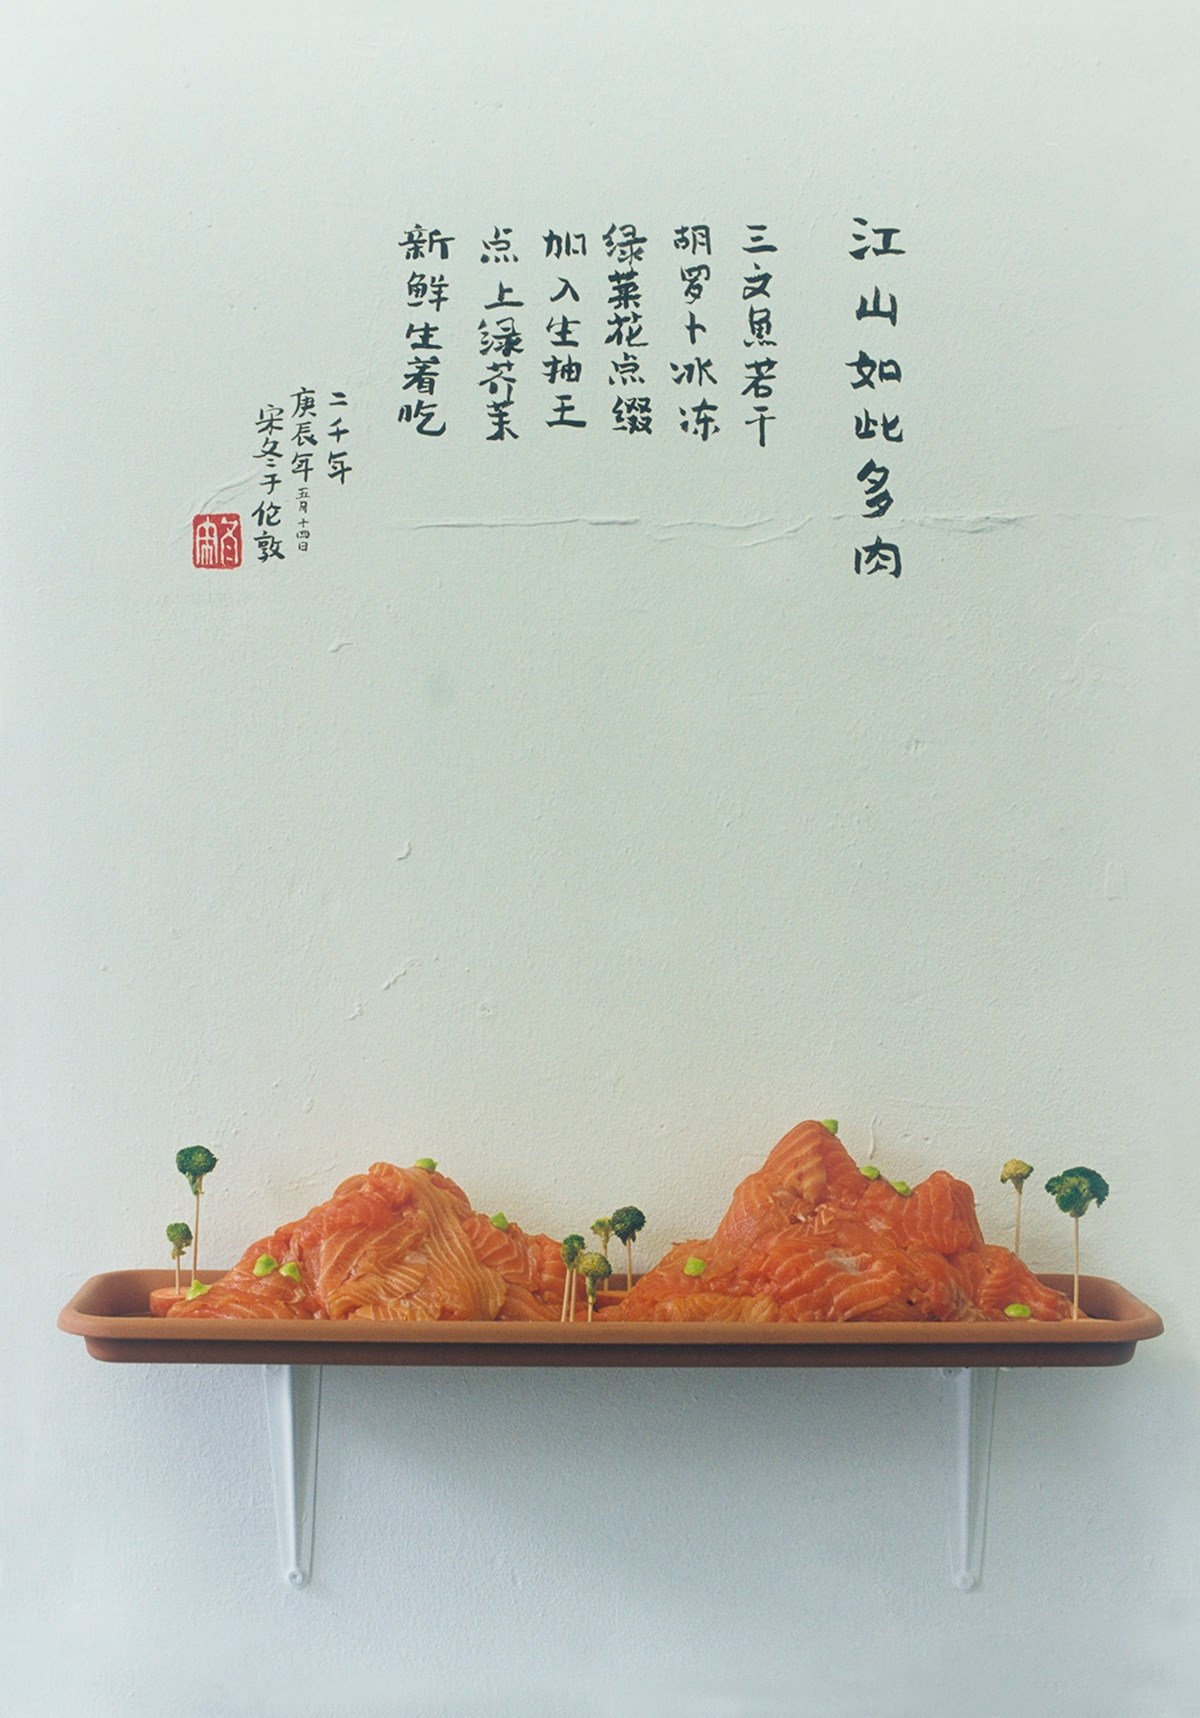 江山如此多肉
三文魚若干
胡罗卜冰冻
绿菜花点缀
加入生抽王
点上绿芥茉
新鲜生着吃
二千年
庚辰年五月十四日
宋冬于伦敦
宋冬